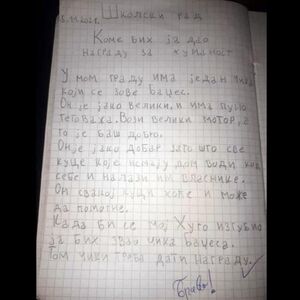 Школски рад
Коме бих ја дао
награду за хуманост
У мом граду има један чика
који се зове Баџес.
Он је јако велики, и има пуно
тетоважа. Вози велики мотор, а
то је баш добро.
Он је јако добар зато што све
куце које немају дом води код
себе и налази им власнике.
Он свакој куци хоће и може
да помогне.
Када би се мој Хуго изгубио
ја бих звао чика Баџеса.
Том чики треба дати награду.
Браво!